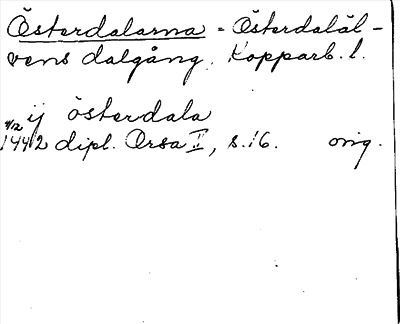 Österdalarna = Österdaläl-
vens dalgång, Kopparb. l.
ij österdala
4/12 1442 dipl. Orsa II, s. 16. orig.